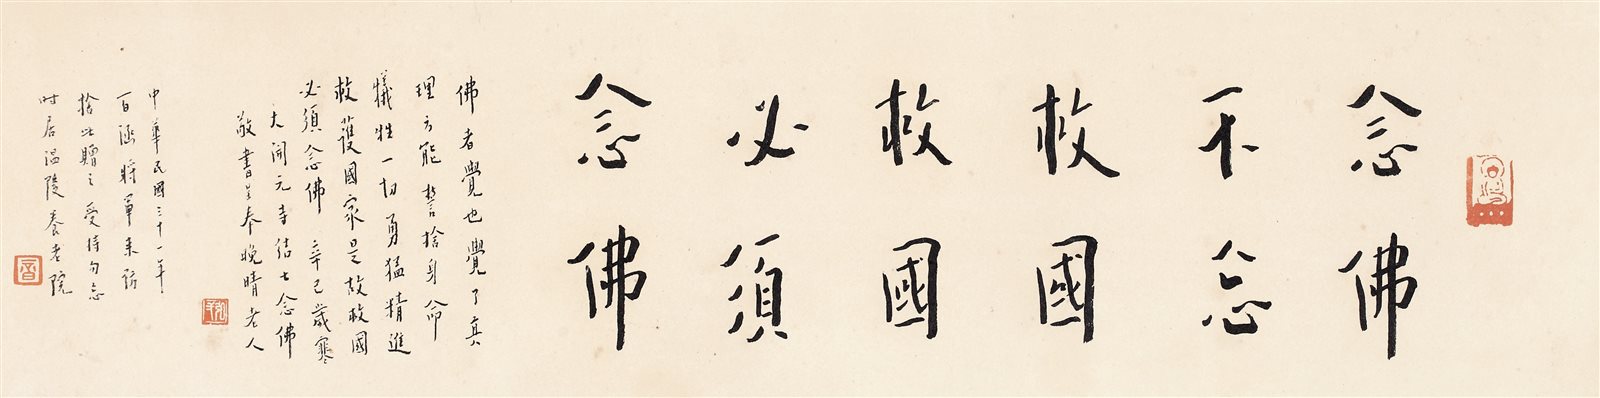 念佛
不忘
救國
救國
必須
念佛
佛者覺也覺了真
理乃能誓捨身命
犧牲一切勇猛精進
救護國家是故救國
必須念佛 辛巳歲寒
大開元寺結七念佛
敬書呈奉晚晴老人
中華民國三十一年
百涵將軍来訪
捨此贈之受持勿忘
时居温陵養老院